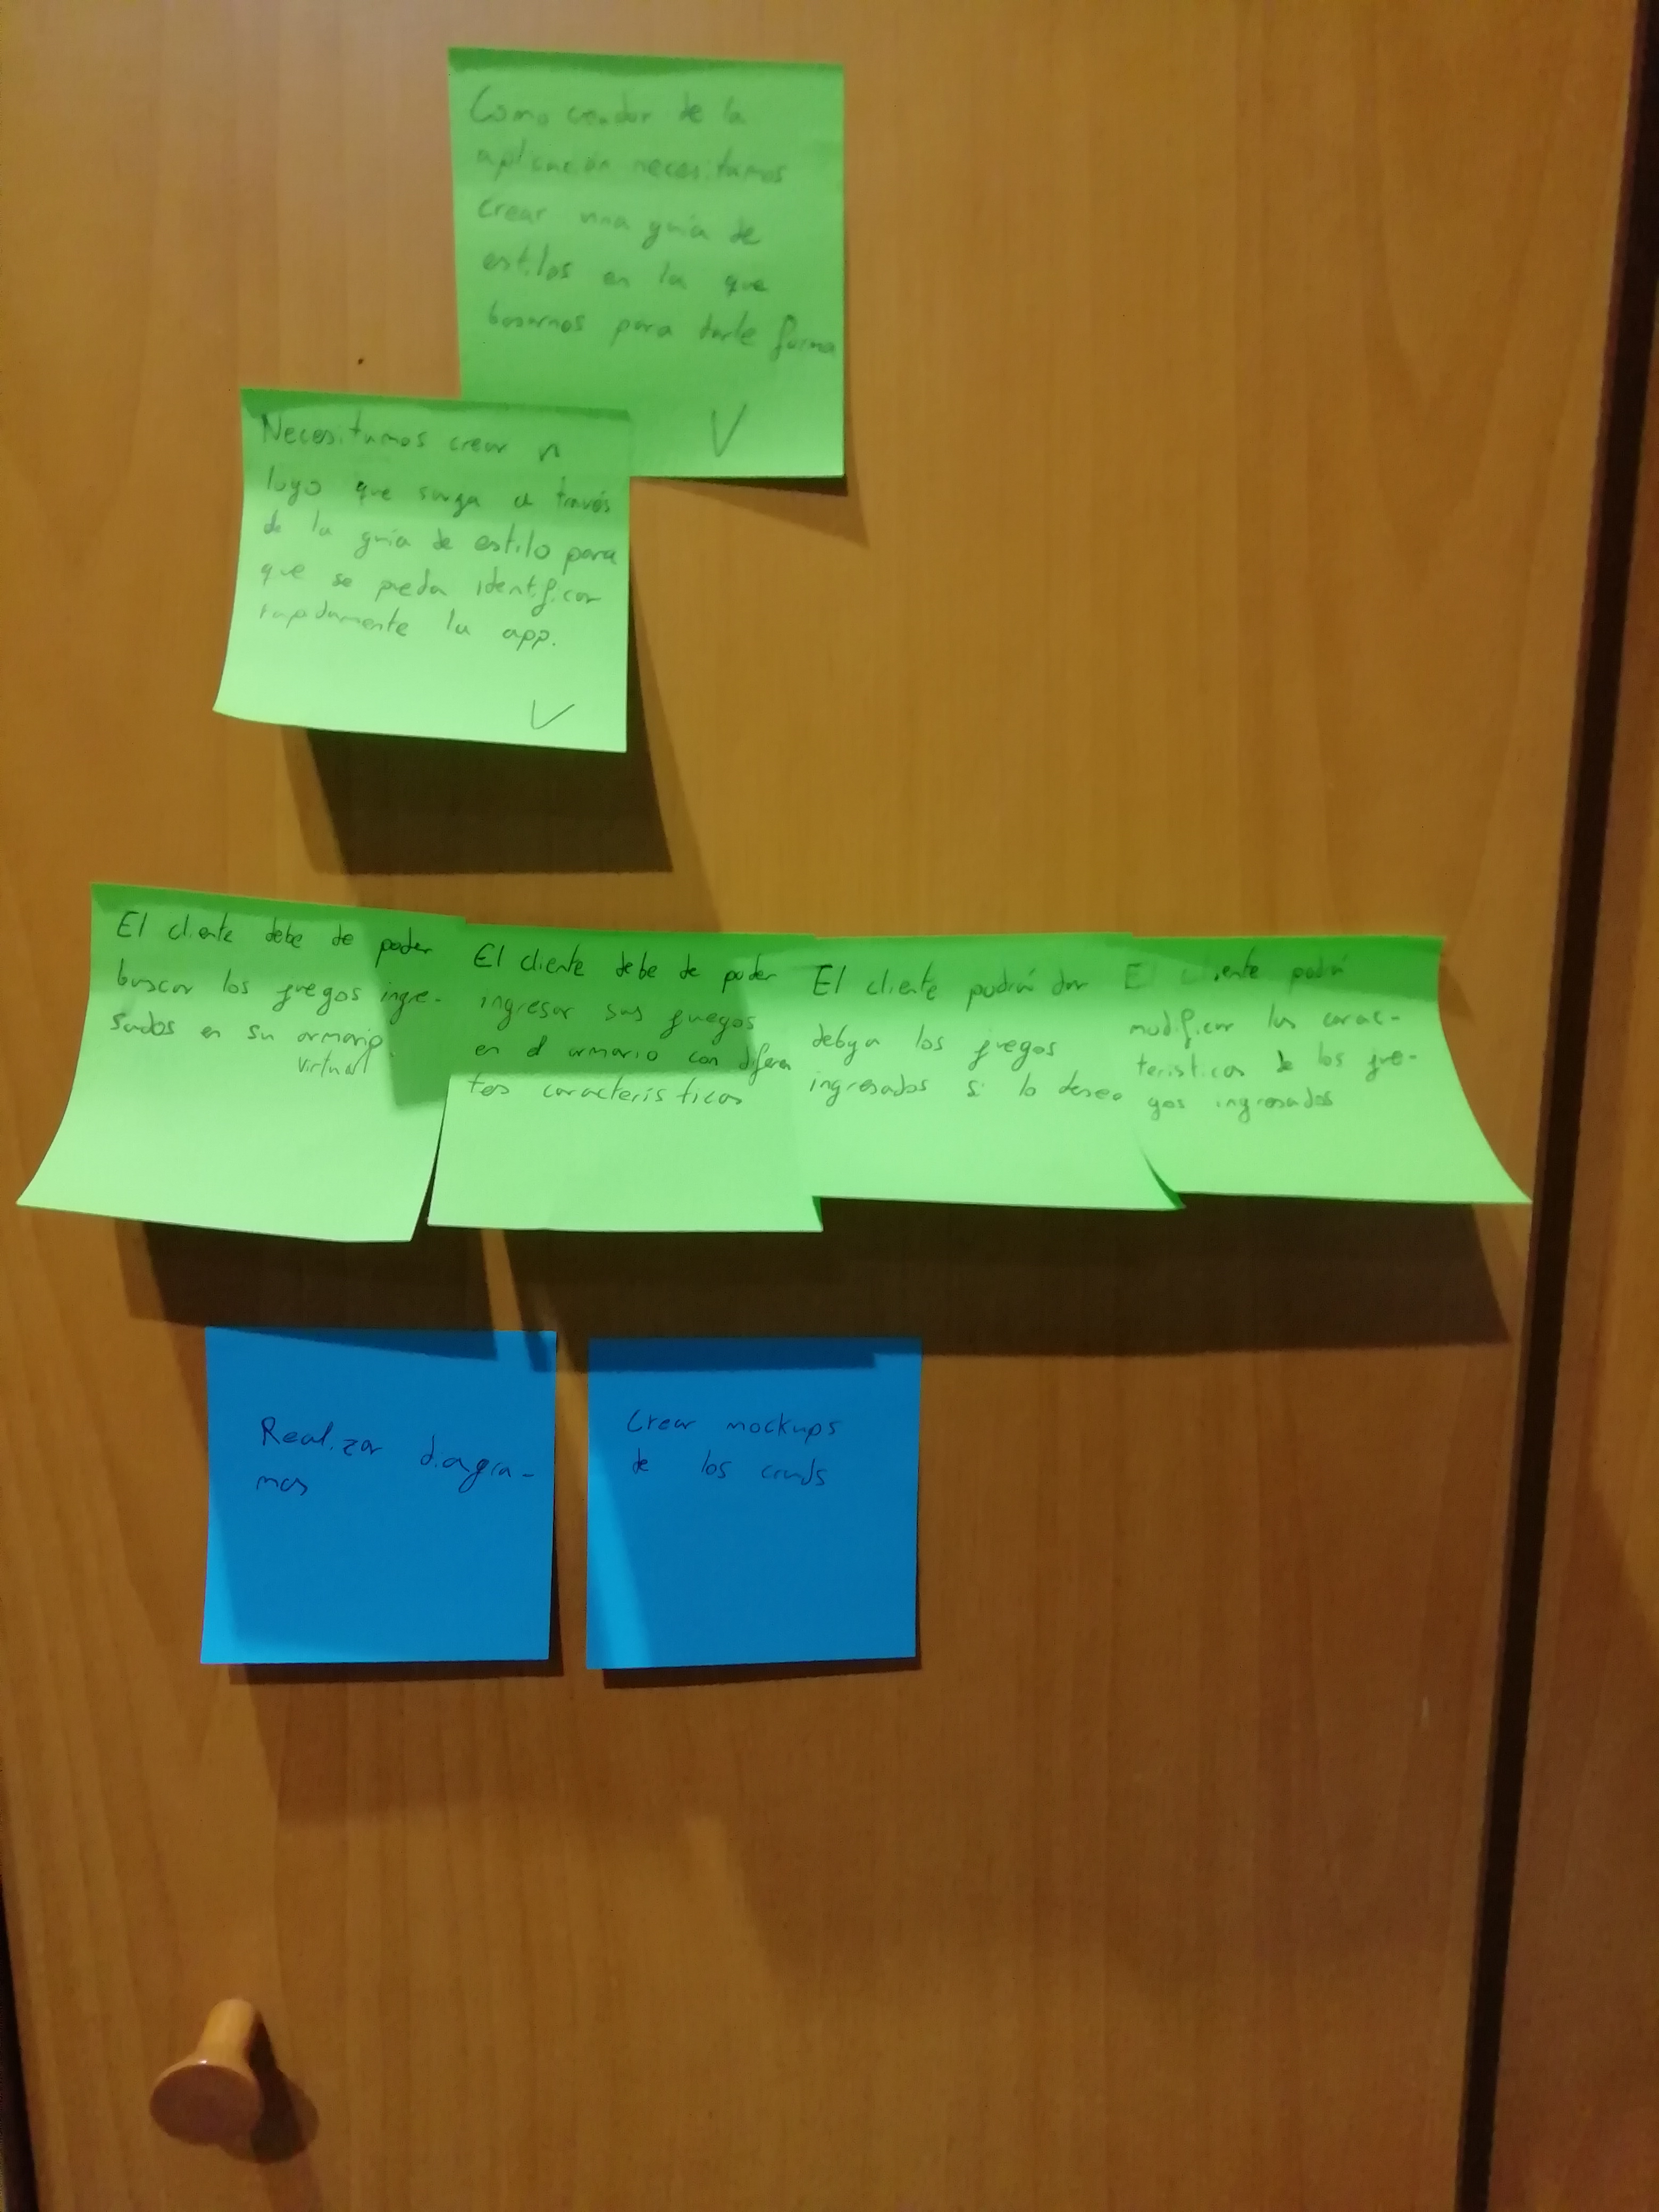 Como creador de la
aplicación necesitamos
crear una guía de
estilos en la que
basarnos para darle forma
V
Necesitamos crear n
logo que surga a través
de la guía de estilo para
que se pueda identificar
rapidamente la app.
V
El cliente debe de poder
buscar los juegos ingre-
sados en su armario
virtual
El cliente debe de poder
ingresar sus juegos
en el armario con diferen
tes características
El cliente podrá dar
de baja los juegos
ingresados si lo desea
El cliente podrá
modificar las carac-
teristicas de los jue-
gos ingresados
Realizar diagra-
mas
Crear mockups
de los cruds